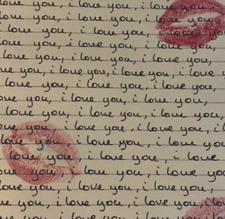 love you, i love you, i love you,
i love you, i love you, i love
love you, i love you, i love you
you, i love you, i love you,
i love you, i love you, i love
love you, i love you, i love you,
you, i love you, i love you,
i love you, i love you, i love
love you, i love you, i love you
you, i love you, i love you,
i love you, i love you, i love
love you, i love you, i love
you, i love you, i love you,
i love you, i love you, i love